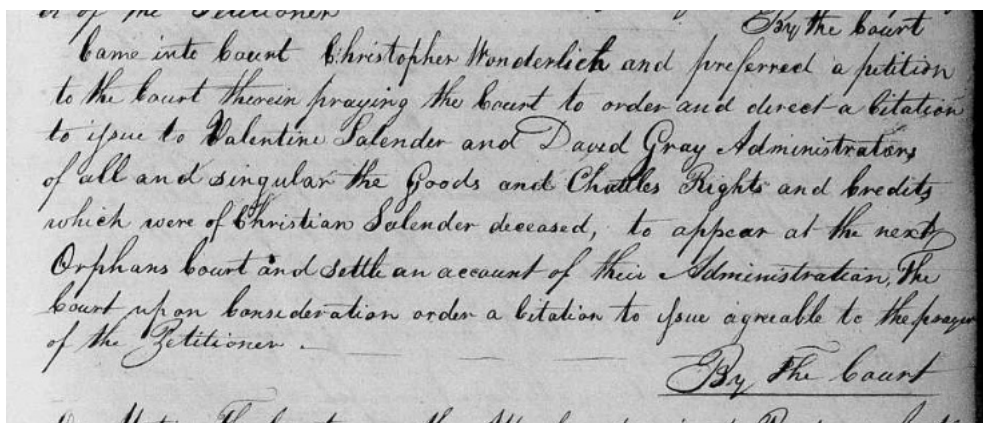 er of the Petitioner
By the Court
Came into Court Christopher Wonderlich and preferred a petition
to the Court therein praying the Court to order and direct a Citation
to issue to Valentine Salender and David Gray Administrators
of all and singular the Goods and Chattles Rights and Credits
which were of Christian Salender deceased, to appear at the next
Orphans Court and settle an account of their Administration, The
Court upon Consideration order a Citation to issue agreable to the prayer
of the Petitioner.
By The Court